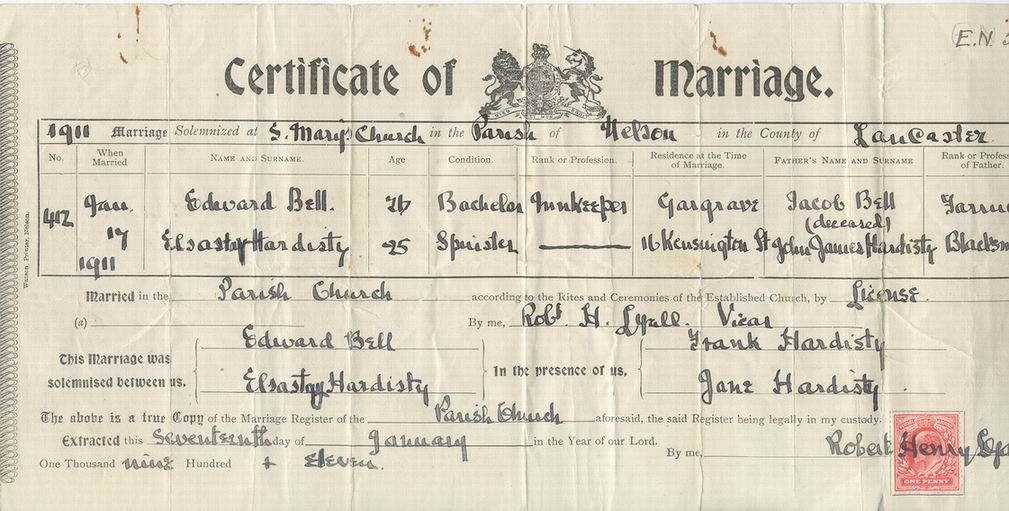 E.N.
Certificate of Marriage.
1911 Marriage Solemnized at S. Mary's Church in the Parish of Nelson in the County of Lancaster
No. When Married NAME AND SURNAME. Age Condition. Rank or Profession. Residence at the Time of Marriage. FATHER'S NAME AND SURNAME Rank or Profess of Father.
412 Jan. Edward Bell. 26 Bachelor Innkeeper Gargrave Jacob Bell
(deceased)
17 Hardisty 25 Spinster 16 Kensington St John James Hardisty Blacksm
1911
Married in the Parish Church according to the Rites and Ceremonies of the Established Church, by License.
(a) By me, Robt. H. Lyall. Vicar
This Marriage was solemnised between us, Edward Bell In the presence of us, Frank Hardisty
Hardisty Jane Hardisty.
The above is a true Copy of the Marriage Register of the Parish Church aforesaid, the said Register being legally in my custody.
Extracted this Seventeenth day of January in the Year of our Lord.
One Thousand nine Hundred + eleven. By me, Robert Henry Ly
ONE PENNY
Watson, Printer, Nelson.